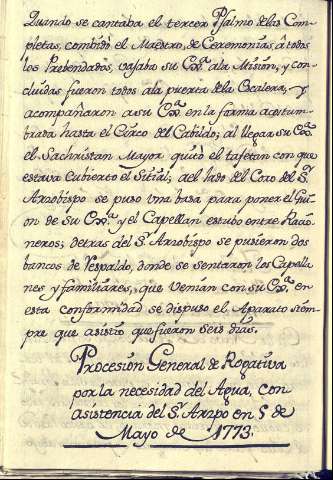 Quando se cantaba el tercer Psalmo de las Com-
pletas, combidó el Maestro de Ceremonias, â todos
los Prebendados, vajaba su Exª. ala Mision, y con-
cluidas fueron todos ala puerta dela Escalera, y
acompañaron a su Exª. en la forma acostum-
brada hasta el Circo del Cabildo; al llegar su Exª.
el Sachristan Mayor quitó el tafetan con que
estava cubierto el Sitial; del lado del Coro del Sr.
Arzobispo se puso una basa para poner el Gui-
on de su Exª. y el Capellan estubo entre Racio-
neros; detras del Sr. Arzobispo se pusieron dos
bancos de Respaldo, donde se sentaron los Capella-
nes y familiares, que venian con su Exª. en
esta conformidad se dispuso el Aparato siem-
pre que asistio que fueron seis dias.
Procesion General de Rogativa
por la necesidad del Agua, con
asistencia del Sr. Arzpo en 5 de
Mayo de 1773.